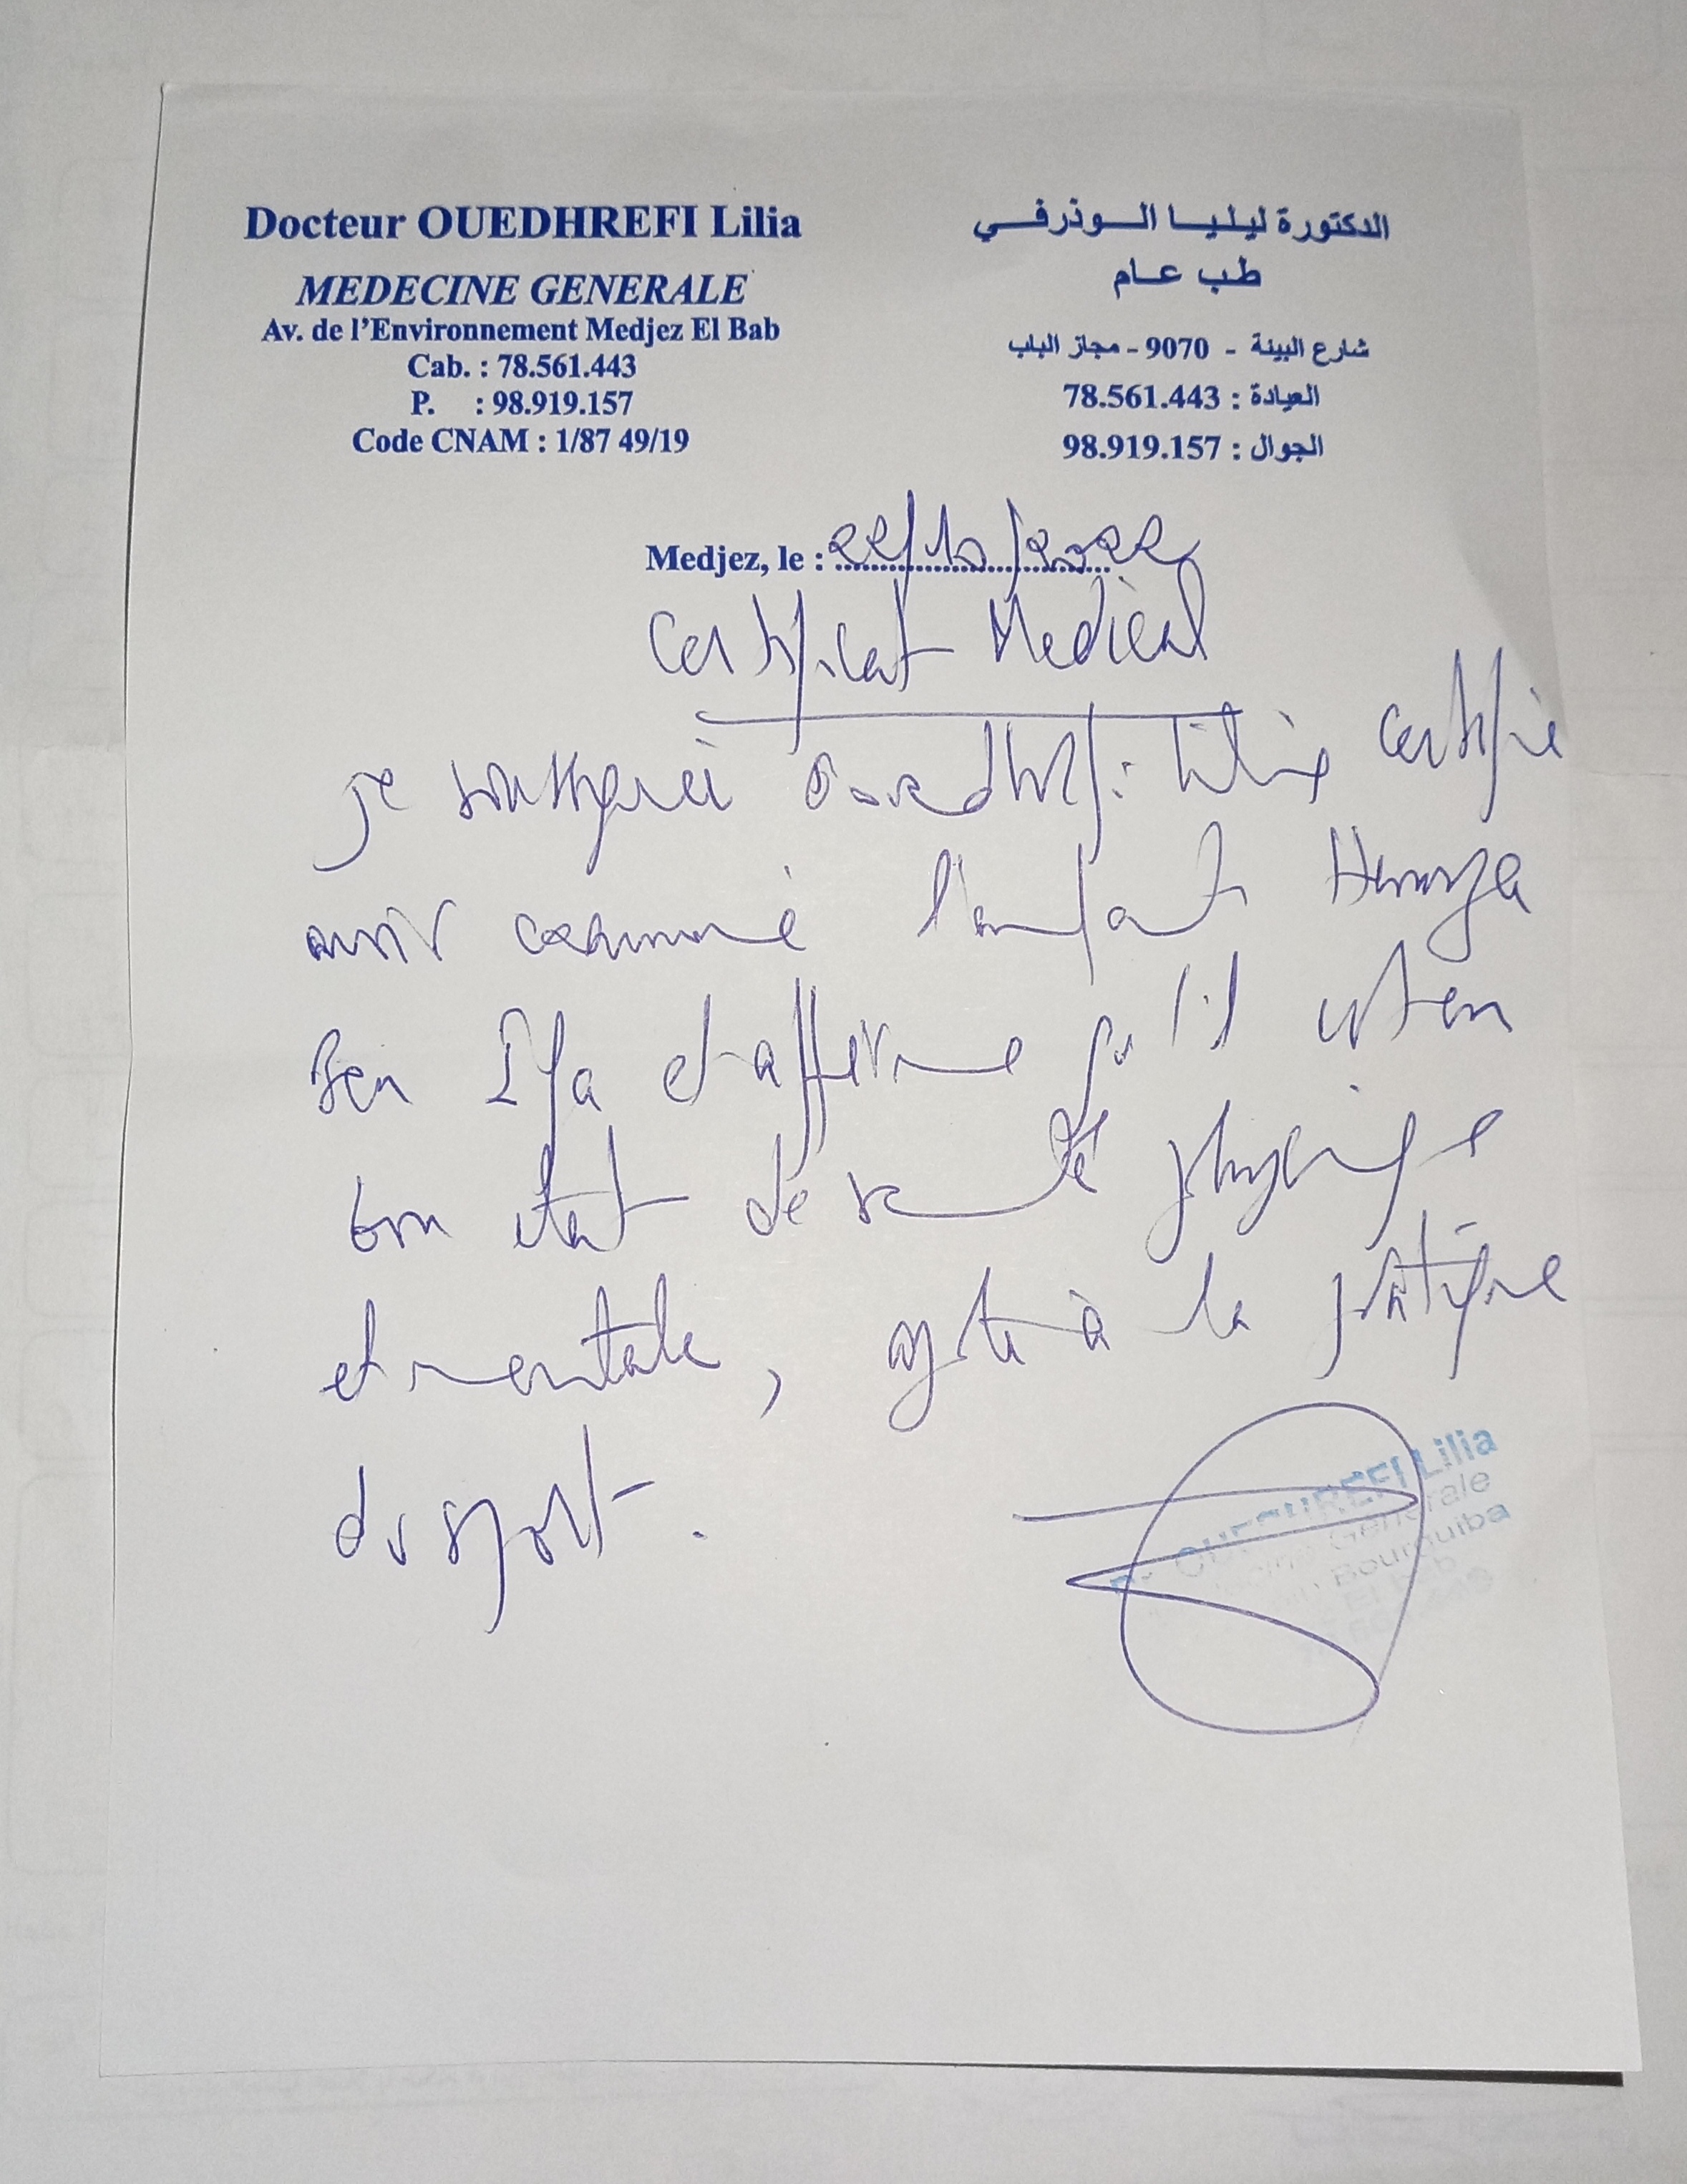 Docteur OUEDHREFI Lilia
MEDECINE GENERALE
Av. de l'Environnement Medjez El Bab
Cab. : 78.561.443
P. : 98.919.157
Code CNAM : 1/87 49/19
الدكتورة ليليا الوذرفي
طب عام
شارع البيئة - 9070 - مجاز الباب
العيادة : 78.561.443
الجوال : 98.919.157
Medjez, le : 22/10/2022
Certificat Medical
je soussignée Ouedhrefi Lilia certifie
avoir examiné l'enfant Hamza
Ben et affirme qu'il est en
bon état de santé physique
et mentale, apte à la pratique
du sport.
Dr OUEDHREFI Lilia
Générale
Bourguiba
El Bab